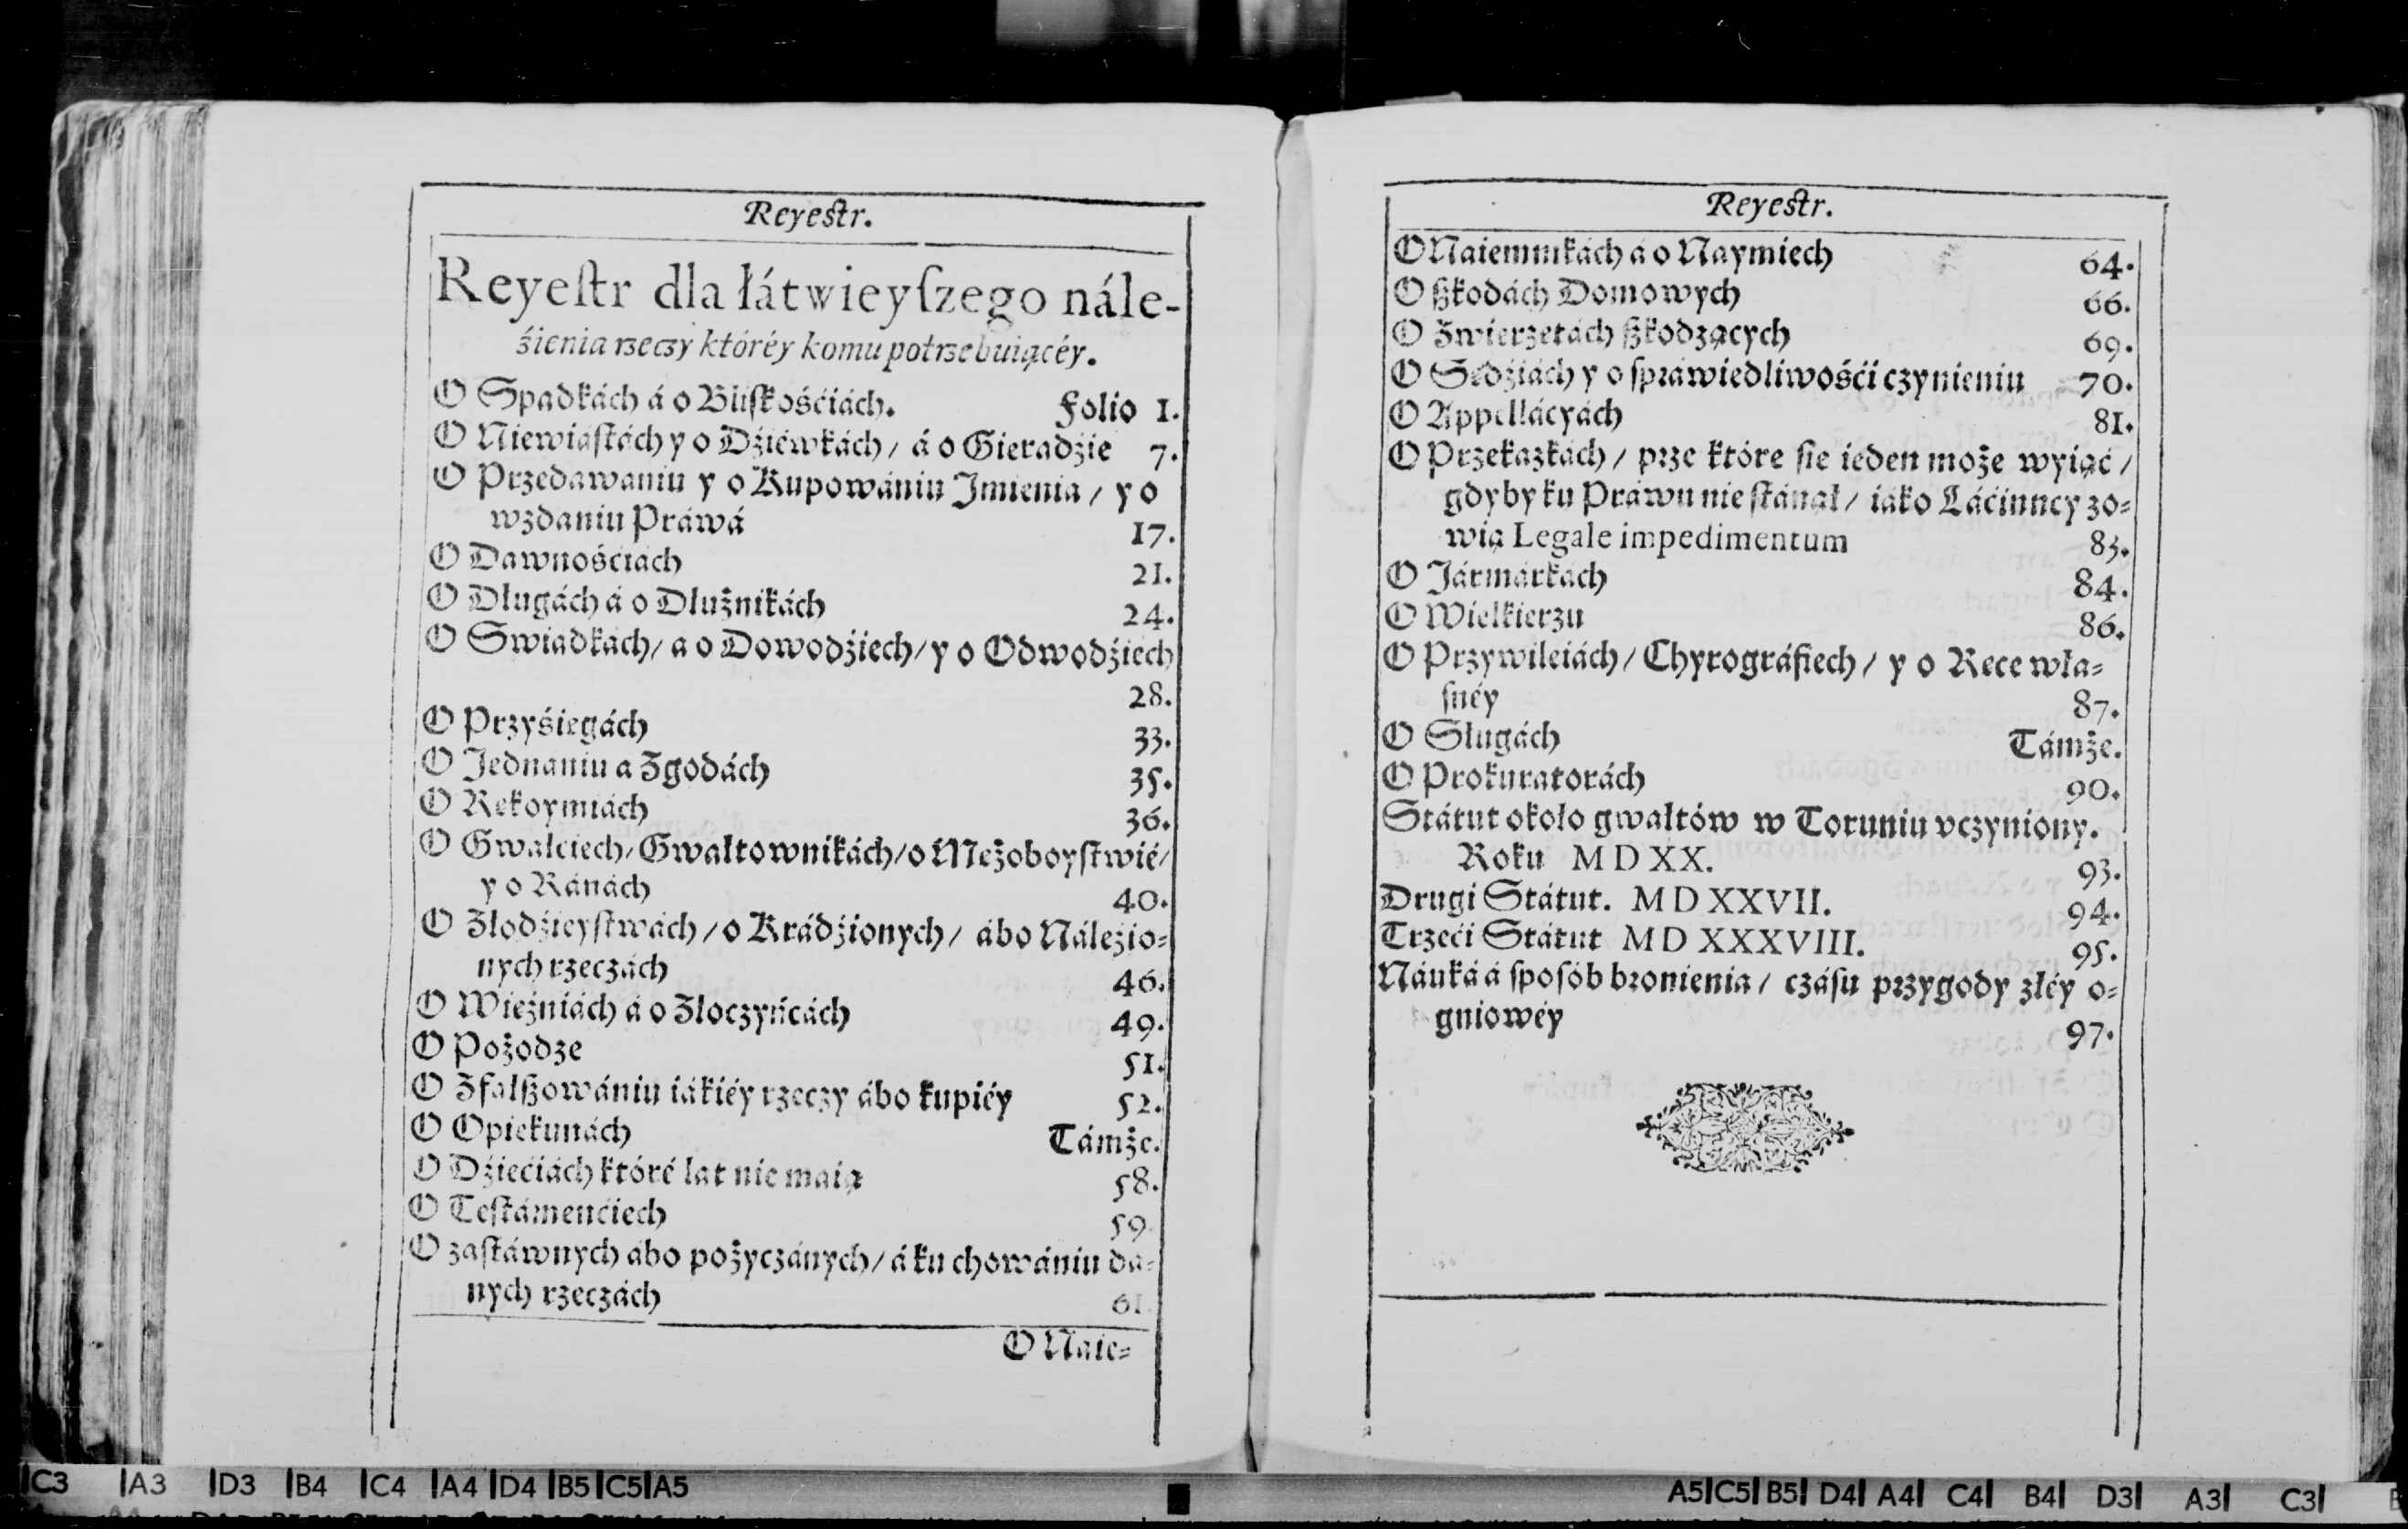 Reyestr.
Reyeſtr dla łátwieyſzego nále-
źienia rzeczy któréy komu potrzebuiącéy.
O Spadkách á o Bliſkośćiách. Folio 1.
O Niewiáſtách y o Dźiéwkách / á o Gieradźie 7.
O Przedawaniu y o Kupowániu Imienia / y o
wzdaniu Práwá 17.
O Dawnośćiach 21.
O Długách á o Dłużnikách 24.
O Swiadkách / a o Dowodźiech / y o Odwodźiech
28.
O Przyśięgách 33.
O Jednaniu a Zgodách 35.
O Rękoymiách 36.
O Gwałciech / Gwałtownikách / o Mężoboyſtwié /
y o Ránách 40.
O Złodźieyſtwách / o Krádźionych / ábo Náleźio-
nych rzeczách 46.
O Więźniách á o Złoczyńcách 49.
O Pożodze 51.
O Zfalſzowániu iákiéy rzeczy ábo kupiéy 52.
O Opiekunách Támże.
O Dźiećiách któré lat nie maią 58.
O Teſtámenćiech 59.
O zaſtáwnych ábo pożyczánych / á ku chowániu da-
nych rzeczách 61.
O Naie-
Reyestr.
O Naiemnikách á o Naymiech 64.
O ſzkodách Domowych 66.
O Zwierzętách ſzkodzących 69.
O Sędźiách y o ſpráwiedliwośći czynieniu 70.
O Appellácyách 81.
O Przekazkách / prze które ſie ieden może wyiąć /
gdyby ku Práwu nie ſtánął / iáko Láćinncy zo-
wią Legale impedimentum 83.
O Jármárkách 84.
O Wielkierzu 86.
O Przywileiách / Chyrográfiech / y o Ręce wła-
ſnéy 87.
O Sługách Támże.
O Prokuratorách 90.
Státut około gwałtów w Toruniu vczyniony.
Roku M D XX. 93.
Drugi Státut. M D XXVII. 94.
Trzeći Státut M D XXXVIII. 95.
Náuká á ſpoſób bronienia / czáſu przygody złéy o-
gniowéy 97.
C3 A3 D3 B4 C4 A4 D4 B5 C5 A5
A5 C5 B5 D4 A4 C4 B4 D3 A3 C3